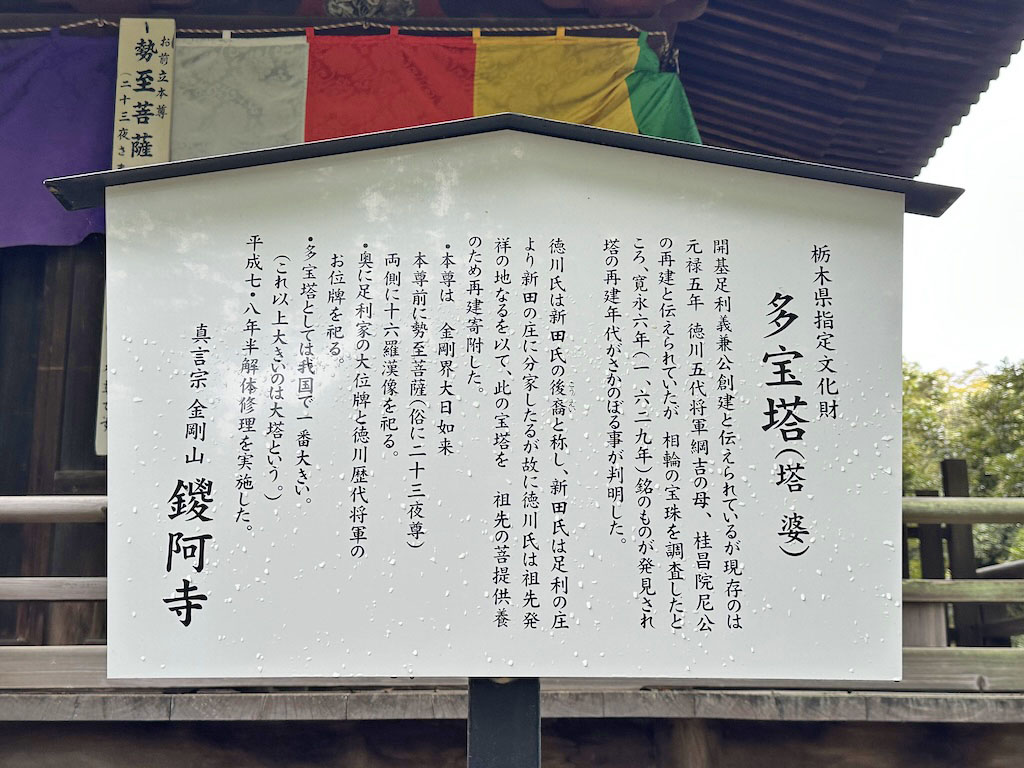 栃木県指定文化財
多宝塔（塔　婆）
開基足利義兼公創建と伝えられているが現存のは
元禄五年　徳川五代将軍綱吉の母、桂昌院尼公
の再建と伝えられていたが　相輪の宝珠を調査したと
ころ、寛永六年（一、六二九年）銘のものが発見され
塔の再建年代がさかのぼる事が判明した。
徳川氏は新田氏の後裔と称し、新田氏は足利の庄
より新田の庄に分家したるが故に徳川氏は祖先発
祥の地なるを以て、此の宝塔を　祖先の菩提供養
のため再建寄附した。
・本尊は　金剛界大日如来
本尊前に勢至菩薩（俗に二十三夜尊）
両側に十六羅漢像を祀る。
・奥に足利家の大位牌と徳川歴代将軍の
お位牌を祀る。
・多宝塔としては我国で一番大きい。
（これ以上大きいのは大塔という。）
平成七・八年半解体修理を実施した。
真言宗　金剛山　鑁阿寺
お前立本尊
勢至菩薩
（二十三夜さま